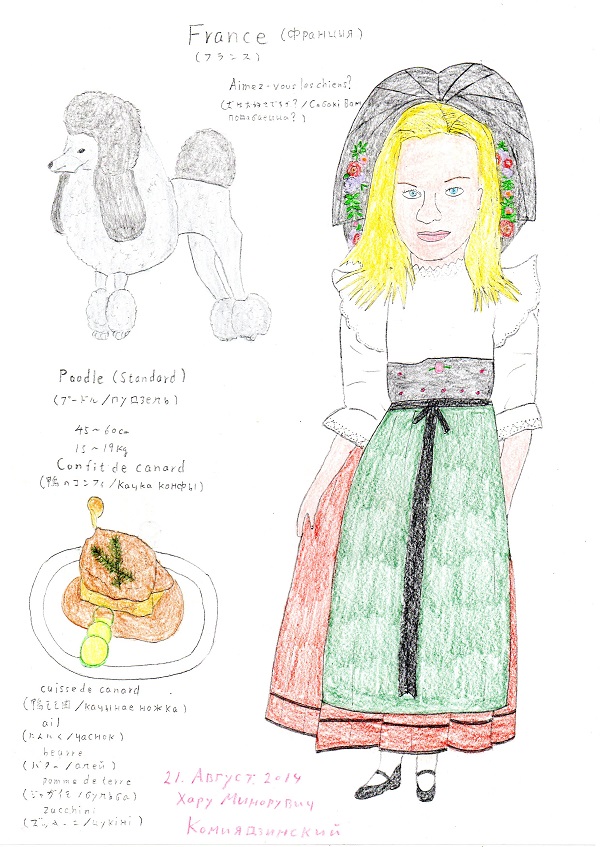 France (Франция)
(フランス)
Aimez-vous les chiens?
(犬はお好きですか?/Сабакі Вам
падабаецца?)
Poodle (Standard)
(プードル/пудзель)
45~60cm
15~19kg
Confit de canard
(鴨のコンフィ/Качка конфы)
cuisse de canard
(鴨もも肉/качыная ножка)
ail
(にんにく/часнок)
beurre
(バター/алей)
pomme de terre
(ジャガイモ/бульба)
zucchini
(ズッキーニ/цукіні)
21. Август 2014
Хару Минорувич
Комиядзинский